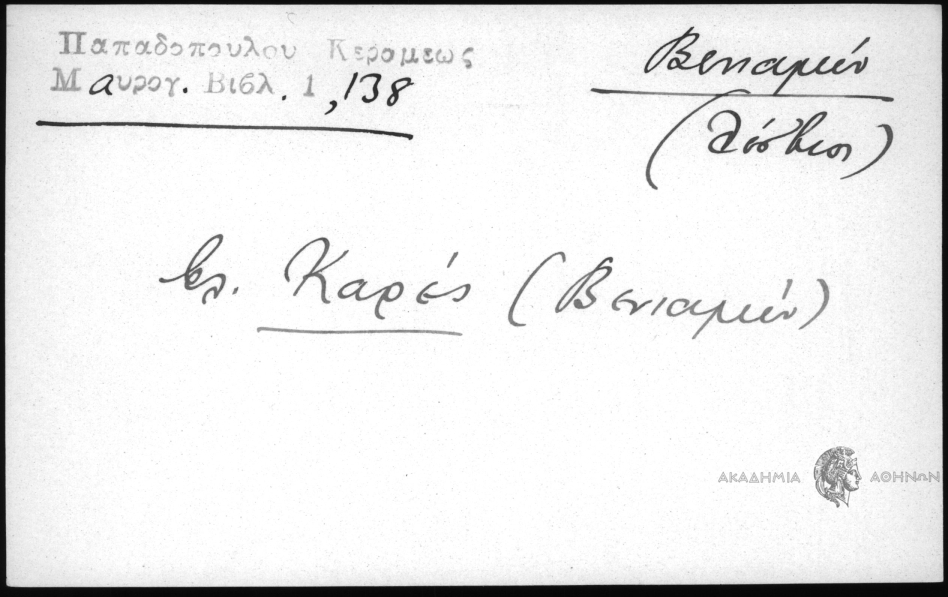 Παπαδοπουλου Κεραμεως
Μαυρογ. Βιβλ. 1, 138
Βενιαμίν
(Λέσβιος)
βλ. Καρές (Βενιαμίν)
ΑΚΑΔΗΜΙΑ ΑΘΗΝΩΝ